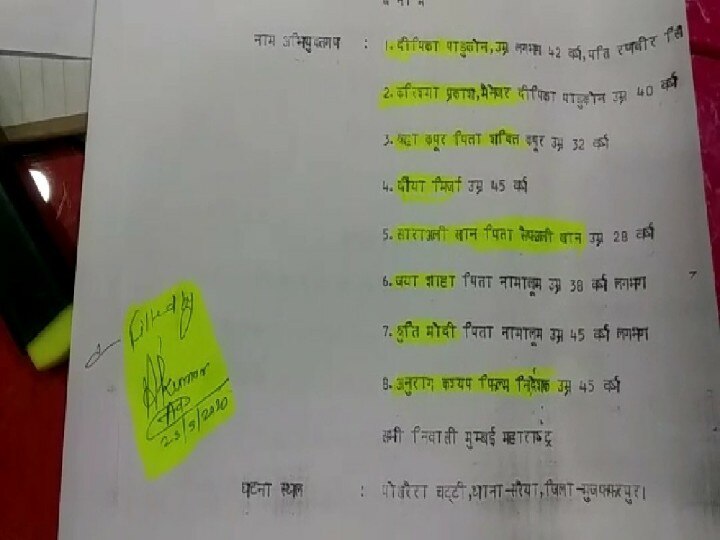 बनाम
नाम अभियुक्तगण : 1. दीपिका पाडुकोन, उम्र लगभग 42 वर्ष, पति रणवीर सिं
2. करिश्मा प्रकाश, मैनेजर दीपिका पाडुकोन उम्र 40 वर्ष
3. श्रद्धा कपूर पिता शक्ति कपूर उम्र 32 वर्ष
4. दीया मिर्जा उम्र 45 वर्ष
5. साराअली खान पिता सैफअली खान उम्र 28 वर्ष
6. जया शाहा पिता नामालूम उम्र 38 वर्ष लगभग
7. श्रुति मोदी पिता नामालूम उम्र 45 वर्ष लगभग
8. अनुराग कश्यप फिल्म निर्देशक उम्र 45 वर्ष
सभी निवासी मुम्बई महाराष्ट्र
घटना स्थल : पोखरैरा चट्टी, थाना-सरैया, जिला-मुजफ्फरपुर।
Filled by
Kumar
Adv
23/9/2020